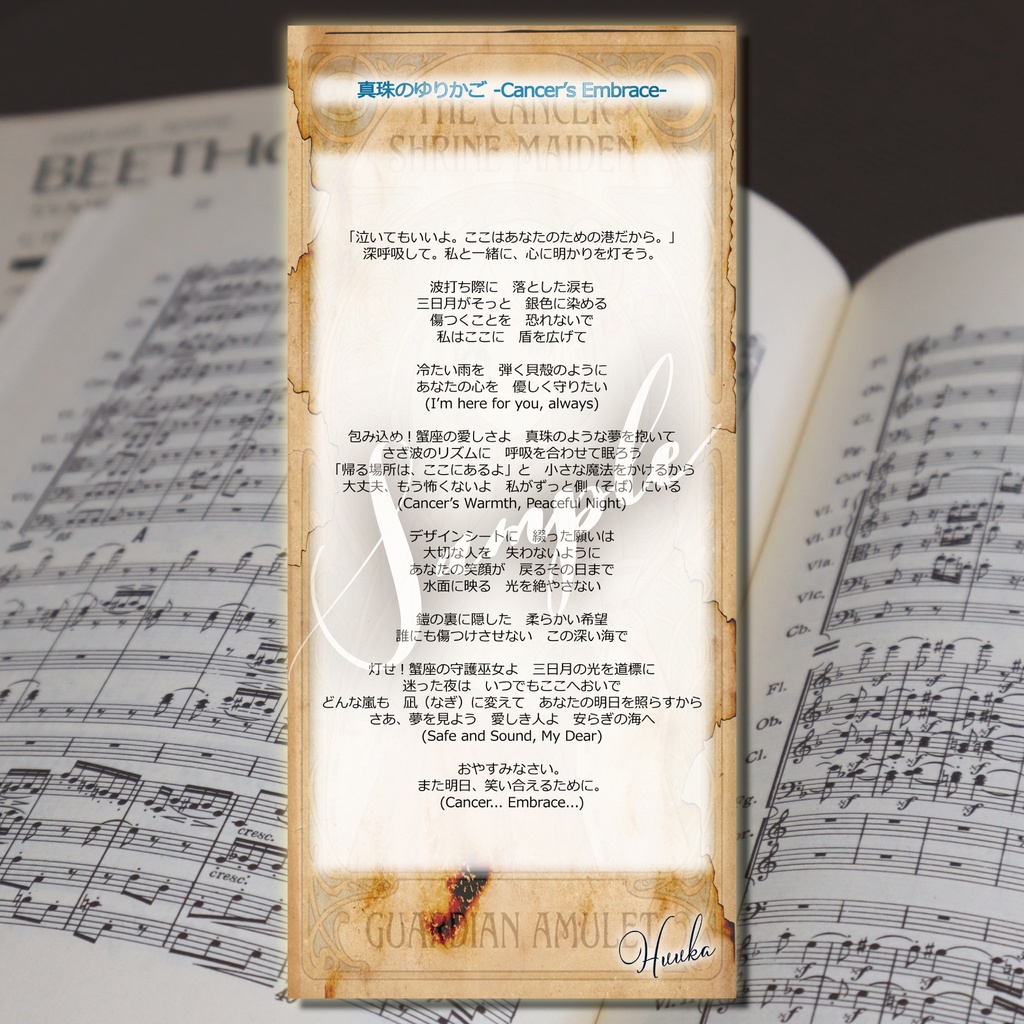 真珠のゆりかご -Cancer's Embrace-
THE CANCER
SHRINE MAIDEN
「泣いてもいいよ。ここはあなたのための港だから。」
深呼吸して。私と一緒に、心に明かりを灯そう。
波打ち際に　落とした涙も
三日月がそっと　銀色に染める
傷つくことを　恐れないで
私はここに　盾を広げて
冷たい雨を　弾く貝殻のように
あなたの心を　優しく守りたい
(I'm here for you, always)
包み込め！蟹座の愛しさよ　真珠のような夢を抱いて
さざ波のリズムに　呼吸を合わせて眠ろう
「帰る場所は、ここにあるよ」と　小さな魔法をかけるから
大丈夫、もう怖くないよ　私がずっと側（そば）にいる
(Cancer's Warmth, Peaceful Night)
デザインシートに　綴った願いは
大切な人を　失わないように
あなたの笑顔が　戻るその日まで
水面に映る　光を絶やさない
鎧の裏に隠した　柔らかい希望
誰にも傷つけさせない　この深い海で
灯せ！蟹座の守護巫女よ　三日月の光を道標に
迷った夜は　いつでもここへおいで
どんな嵐も　凪（なぎ）に変えて　あなたの明日を照らすから
さあ、夢を見よう　愛しき人よ　安らぎの海へ
(Safe and Sound, My Dear)
おやすみなさい。
また明日、笑い合えるために。
(Cancer... Embrace...)
Sample
GUARDIAN AMULET
Huuka
BEETHO
cresc.
cresc.
Vl. I
Vl. II
Vla.
Vlc.
Cb.
Fl.
Ob.
Cl.